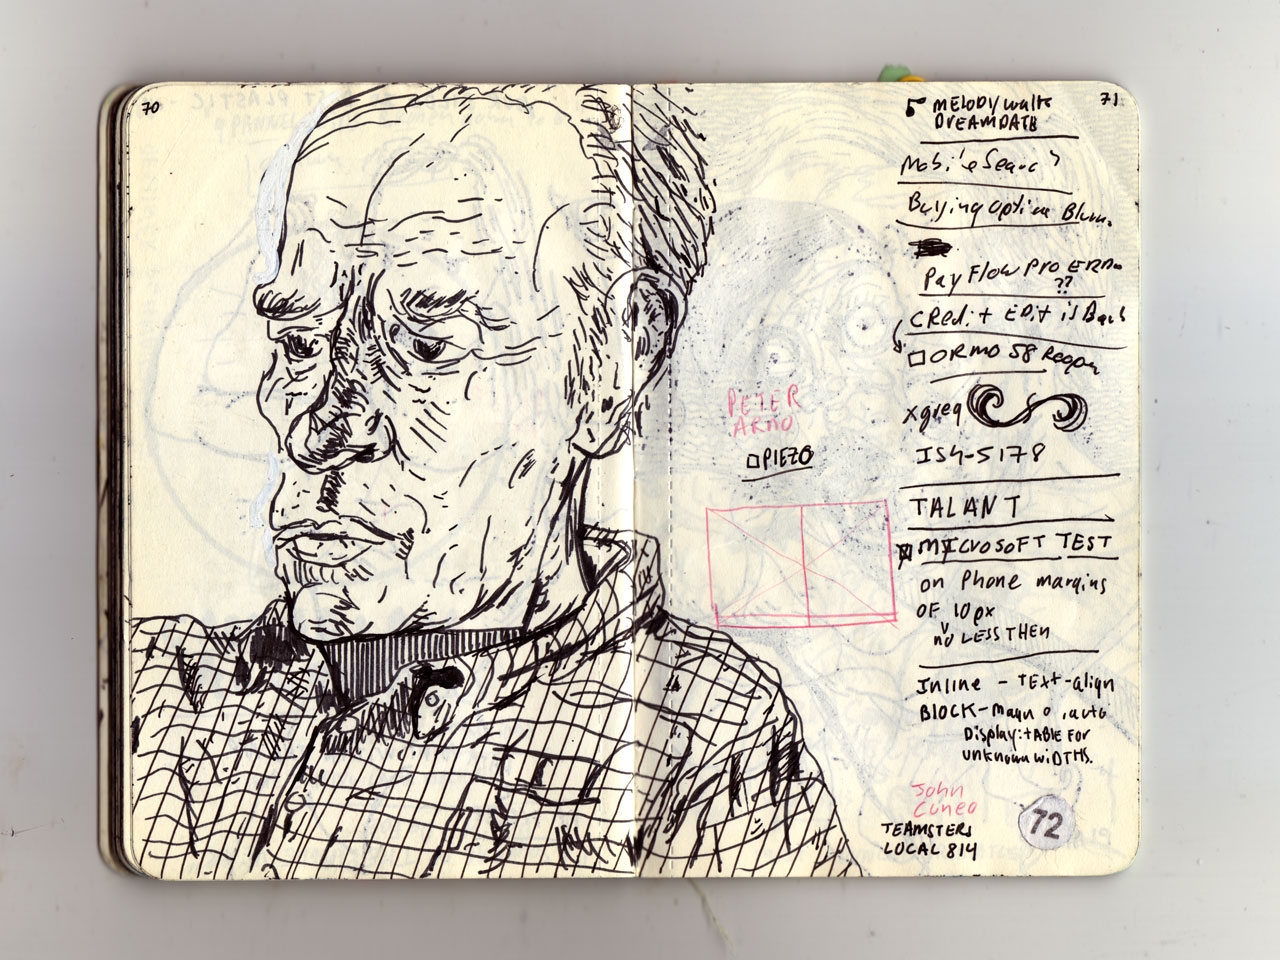 70
71
MELODY waltz
DREAMDATH
Mobile Search
Buying option Blum.
Pay Flow Pro ERRo
??
CRedit EDit is Back
ORMO 58 Reopen
xgreq
IS4-5178
TALANT
MICROSOFT TEST
on Phone margins
OF 10px
no LESS THEN
Inline - TEXt-align
BLOCK-margn 0 , auto
Display:tABLE FOR
unknown wiDTHS.
PETER
ARNO
PIEZO
John
Cuneo
TEAMSTERS
LOCAL 814
72